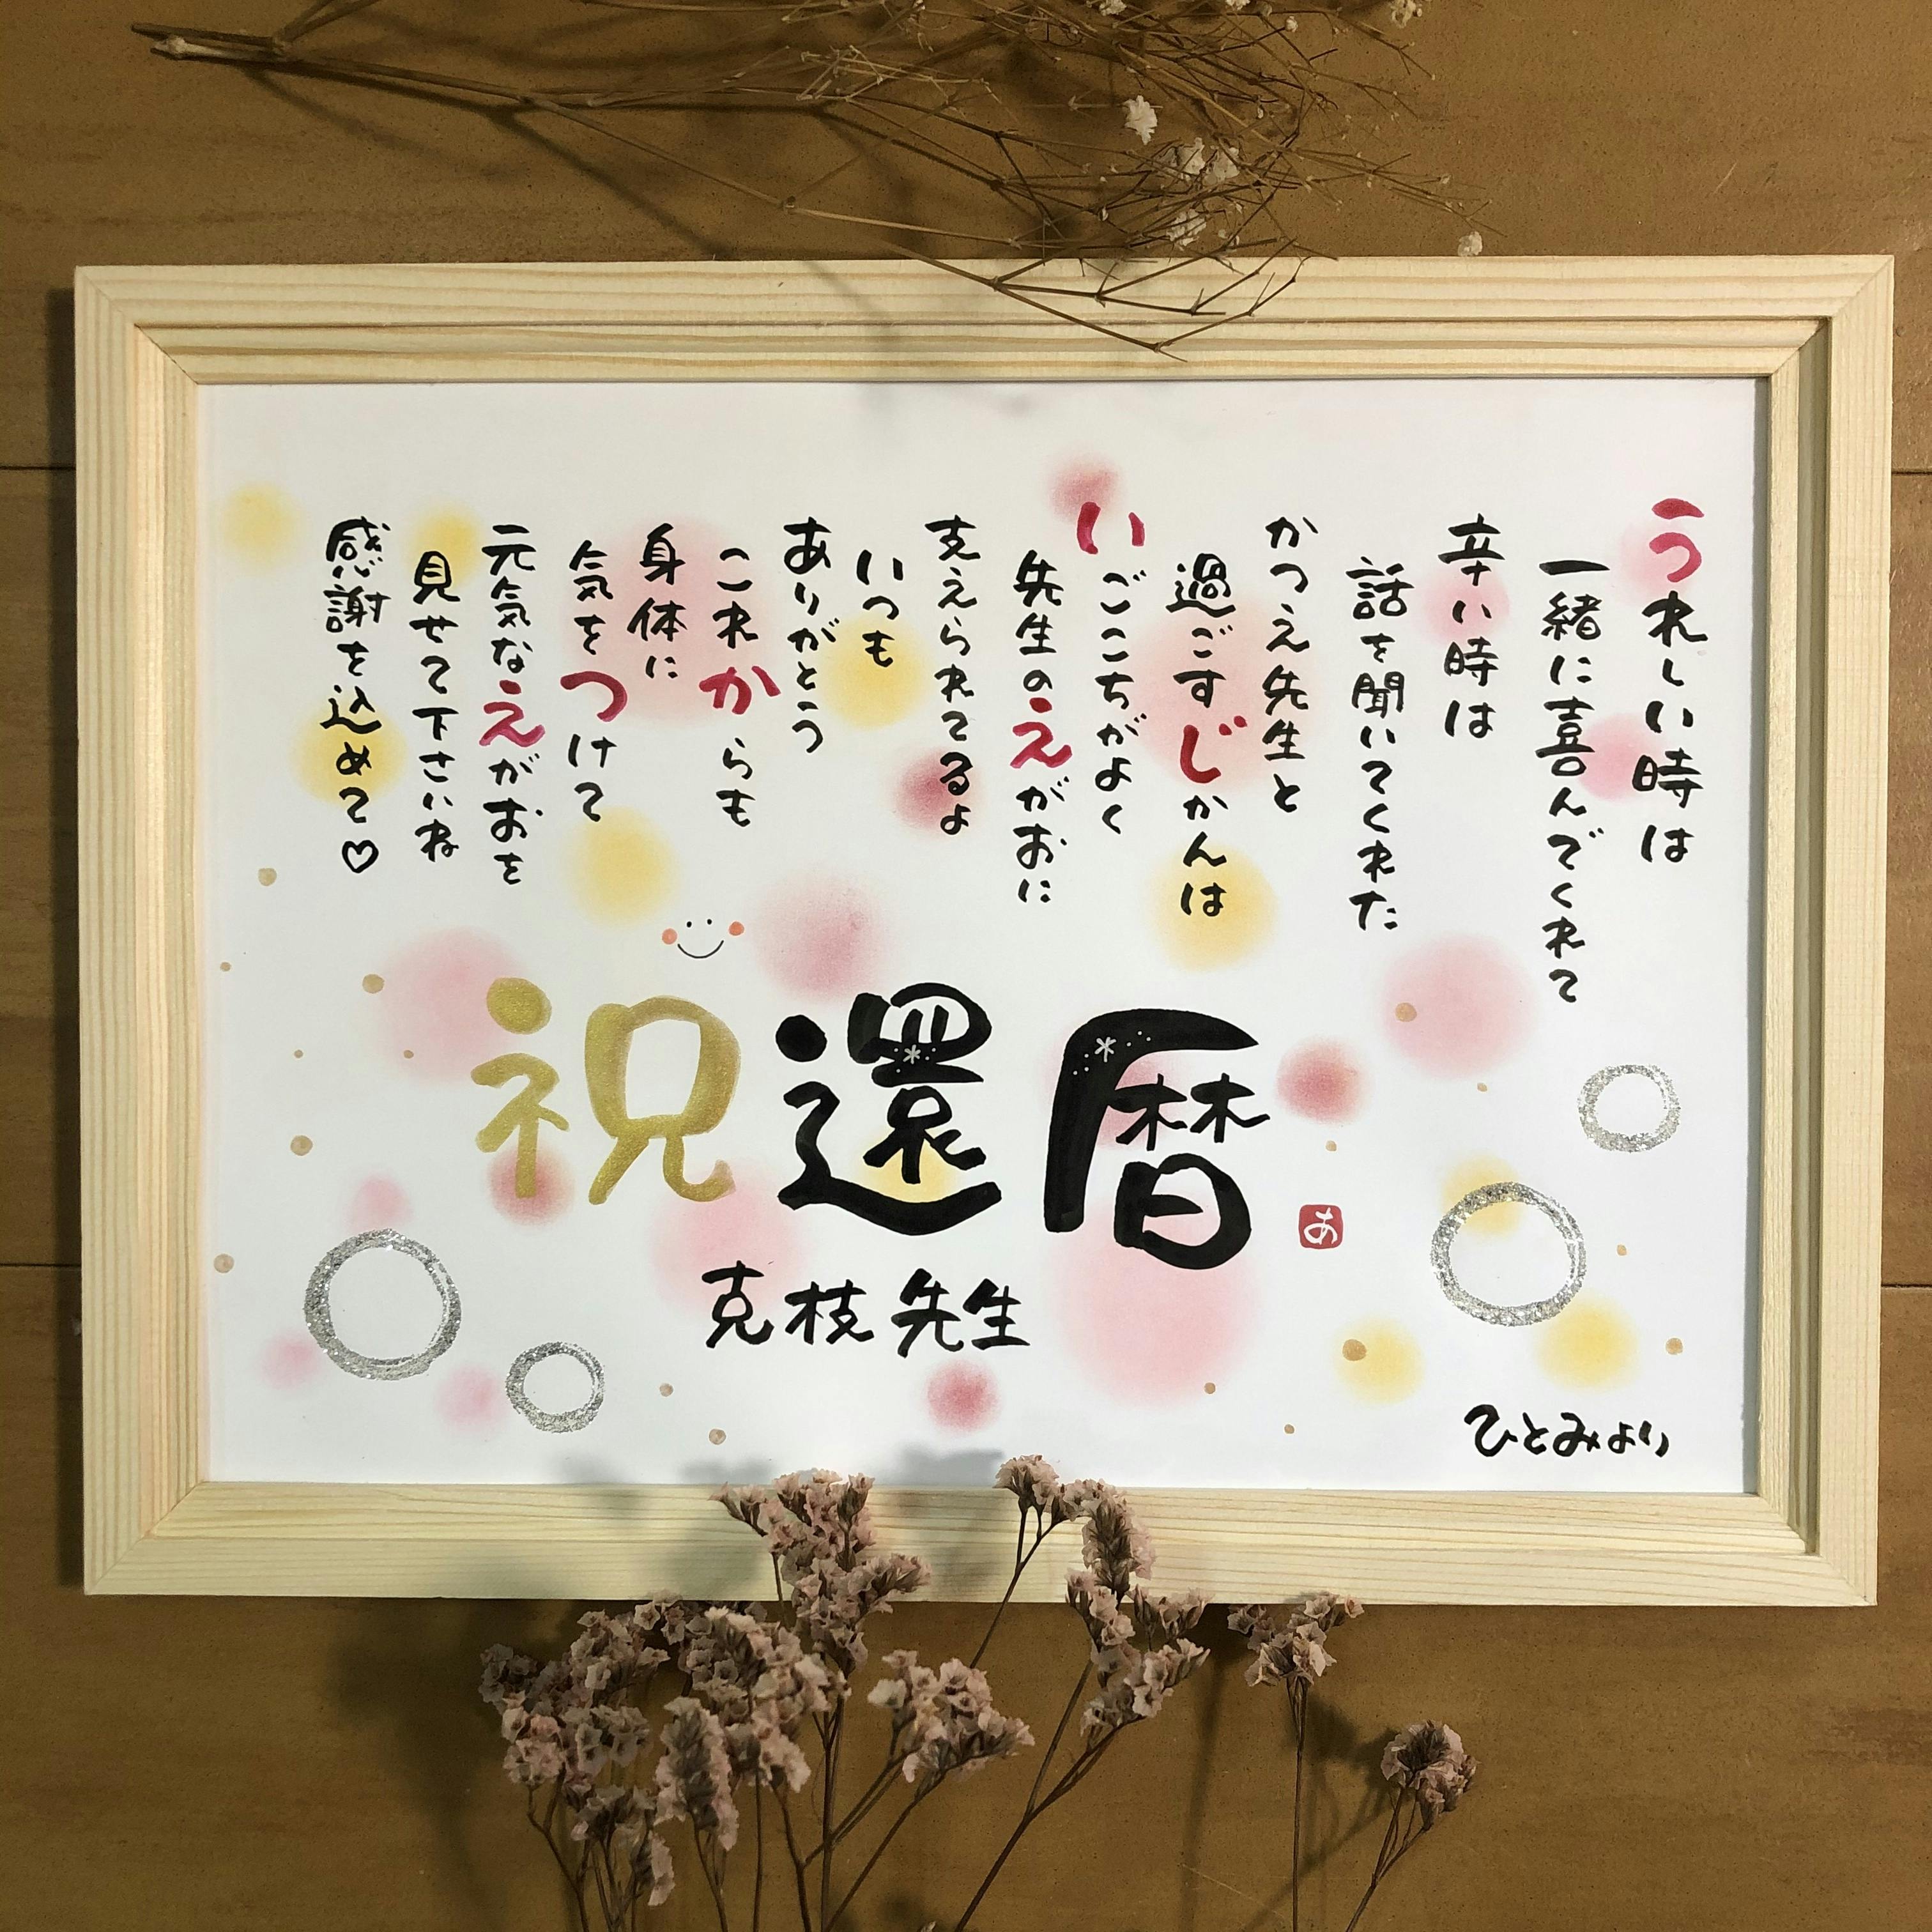 うれしい時は
一緒に喜んでくれて
辛い時は
話を聞いてくれた
かつえ先生と
過ごすじかんは
いごこちがよく
先生のえがおに
支えられてるよ
いつも
ありがとう
これからも
身体に
気をつけて
元気なえがおを
見せて下さいね
感謝を込めて♡
祝還暦
あ
克枝先生
ひとみより